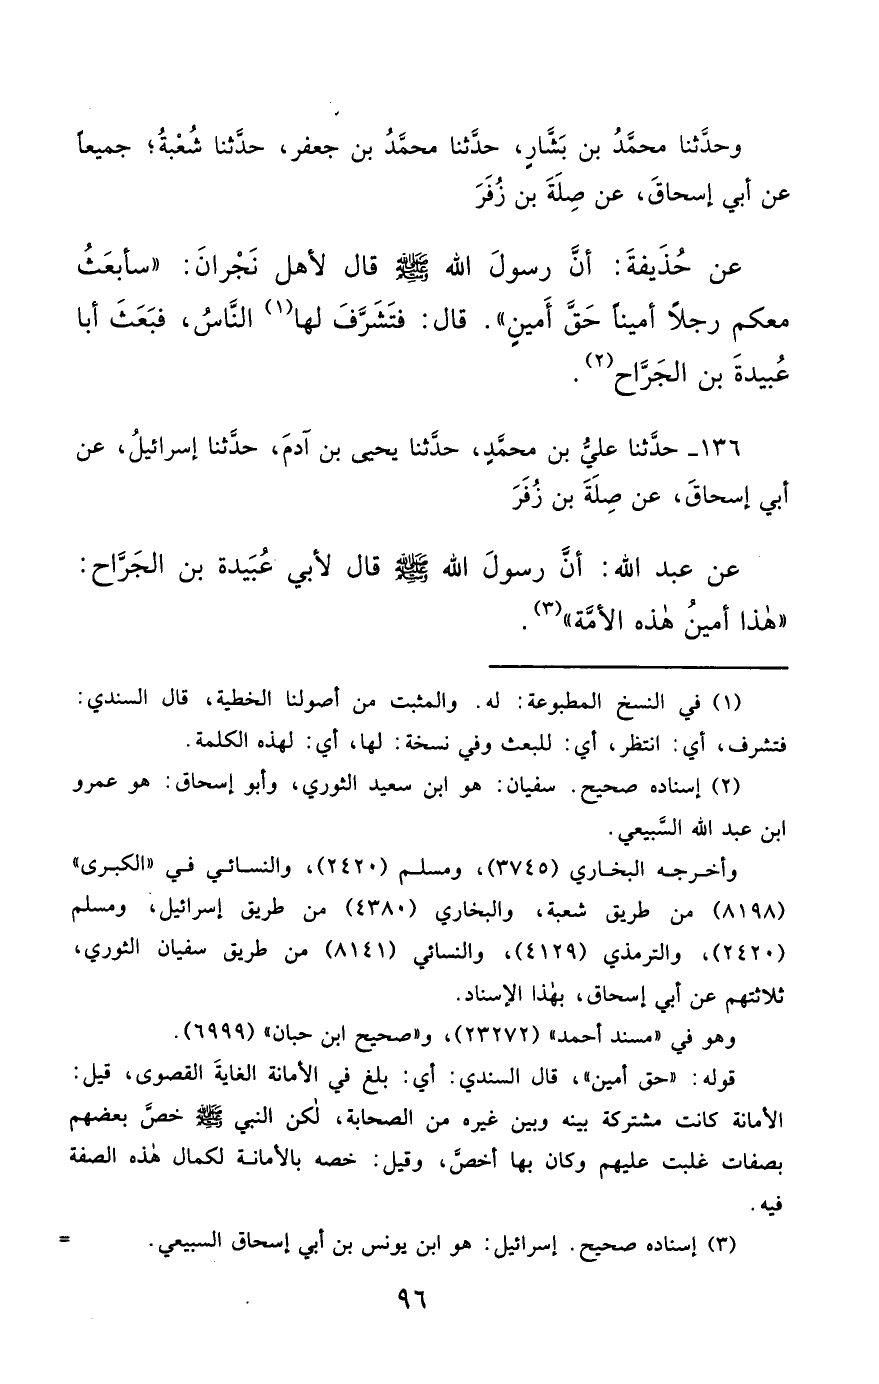 وحدَّثنا محمَّدُ بن بَشَّارٍ، حدَّثنا محمَّدُ بن جعفر، حدَّثنا شُعْبةُ؛ جميعاً
عن أبي إسحاقَ، عن صِلَةَ بن زُفَرَ
عن حُذَيفةَ: أنَّ رسولَ الله ﷺ قال لأهل نَجْرانَ: «سأبعَثُ
معكم رجلاً أميناً حَقَّ أَمينٍ». قال: فتَشَرَّفَ لها(١) النَّاسُ، فبَعَثَ أبا
عُبيدةَ بن الجَرَّاح(٢).
١٣٦ـ حدَّثنا عليُّ بن محمَّدٍ، حدَّثنا يحيى بن آدمَ، حدَّثنا إسرائيلُ، عن
أبي إسحاقَ، عن صِلَةَ بن زُفَرَ
عن عبد الله: أنَّ رسولَ الله ﷺ قال لأبي عُبَيدة بن الجَرَّاح:
«هٰذا أمينُ هٰذه الأمَّة»(٣).
(١) في النسخ المطبوعة: له. والمثبت من أصولنا الخطية، قال السندي:
فتشرف، أي: انتظر، أي: للبعث وفي نسخة: لها، أي: لهذه الكلمة.
(٢) إسناده صحيح. سفيان: هو ابن سعيد الثوري، وأبو إسحاق: هو عمرو
ابن عبد الله السَّبيعي.
وأخرجه البخاري (٣٧٤٥)، ومسلم (٢٤٢٠)، والنسائي في «الكبرى»
(٨١٩٨) من طريق شعبة، والبخاري (٤٣٨٠) من طريق إسرائيل، ومسلم
(٢٤٢٠)، والترمذي (٤١٢٩)، والنسائي (٨١٤١) من طريق سفيان الثوري،
ثلاثتهم عن أبي إسحاق، بهٰذا الإسناد.
وهو في «مسند أحمد» (٢٣٢٧٢)، و«صحيح ابن حبان» (٦٩٩٩).
قوله: «حق أمين»، قال السندي: أي: بلغ في الأمانة الغايةَ القصوى، قيل:
الأمانة كانت مشتركة بينه وبين غيره من الصحابة، لٰكن النبي ﷺ خصَّ بعضهم
بصفات غلبت عليهم وكان بها أخصَّ، وقيل: خصه بالأمانة لكمال هٰذه الصفة
فيه.
(٣) إسناده صحيح. إسرائيل: هو ابن يونس بن أبي إسحاق السبيعي. =
٩٦